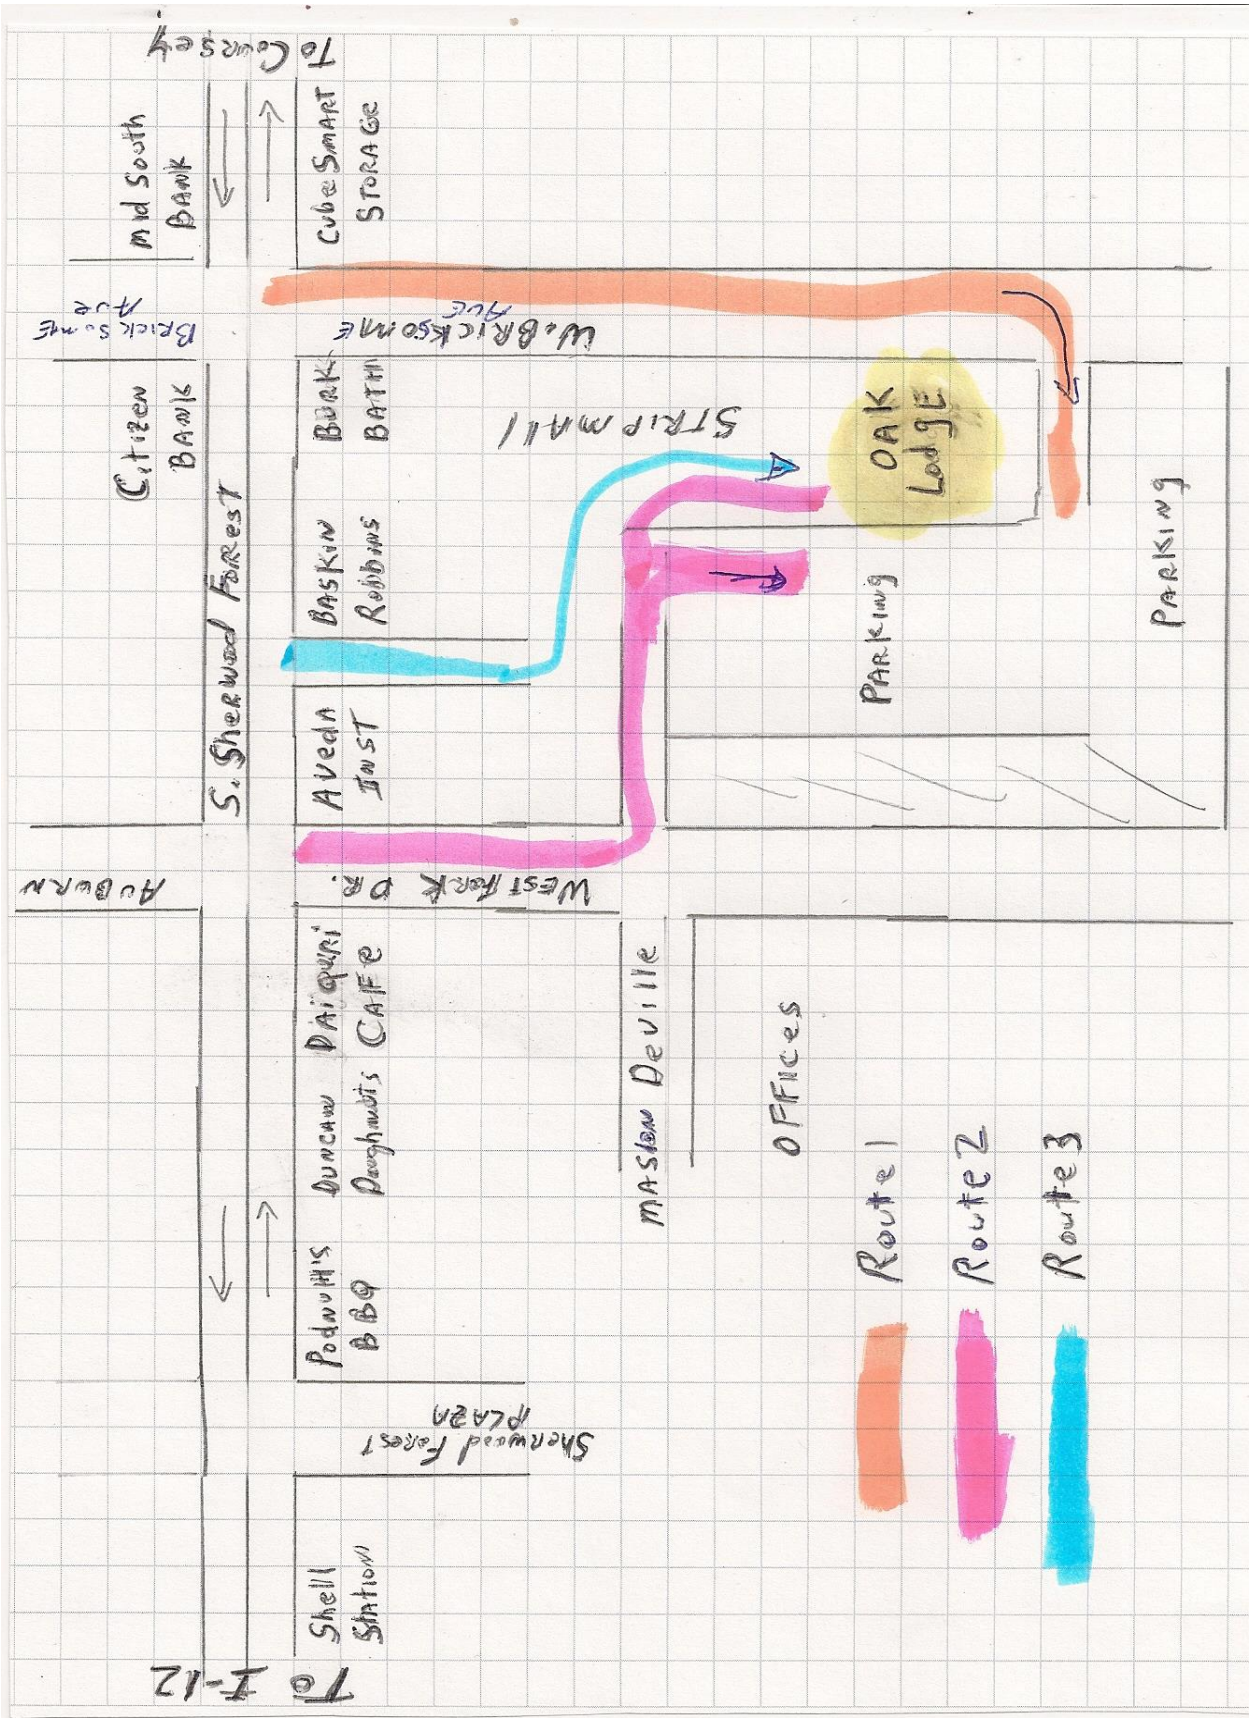 To Coursey
Mid South
BANK
CubeSMART
STORAGE
BrickSomE
AvE
W. BRICKSOME
AVE
Citizen
BANK
S. SherWood ForesT
BORK
BATH
STRIP mAll
BASKIN
Robbins
OAK
LodgE
PARKING
PARKING
AVedA
INST
AuBurN
WEST Fork DR.
DAiquiri
CAFE
Duncan
Doughnuts
MASION DeVille
OFFices
PodNuH's
BBQ
Sherwood Forest
PLAZA
Shell
Station
To I-12
Route 1
Route 2
Route 3